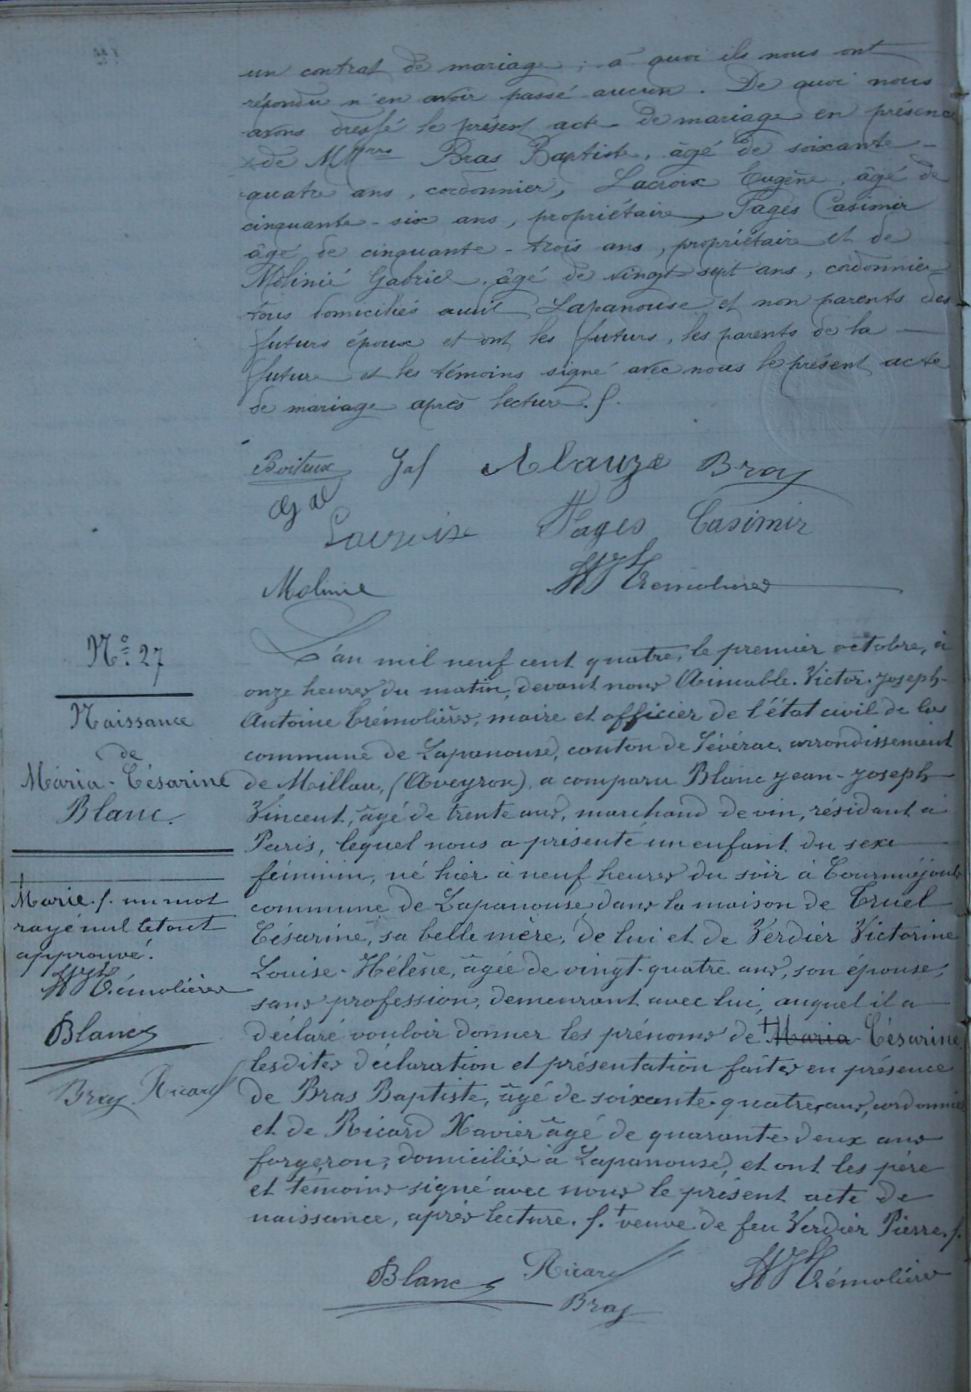 un contrat de mariage ; à quoi ils nous ont
répondu n'en avoir passé aucun. De quoi nous
avons dressé le présent acte de mariage en présence
de M.rs Bras Baptiste, âgé de soixante-
quatre ans, cordonnier, Lacroix Eugène, âgé de
cinquante-six ans, propriétaire, Pagès Casimir
âgé de cinquante-trois ans, propriétaire et de
Molinié Gabriel, âgé de vingt sept ans, cordonnier
tous domiciliés audit Lapanouse et non parents des
futurs époux et ont les futurs, les parents de la
future et les témoins signé avec nous le présent acte
de mariage après lecture. f.
Boituse Alauze Bras
Lacroix Pages Casimir
Molinie Trémolières
N.° 27
Naissance
de
Maria-Césarine
Blanc.
L'an mil neuf cent quatre, le premier octobre, à
onze heures du matin, devant nous Aimable-Victor-Joseph-
Antoine Trémolières, maire et officier de l'état civil de la
commune de Lapanouse, canton de Sévérac, arrondissement
de Millau, (Aveyron), a comparu Blanc Jean-Joseph-
Vincent, âgé de trente ans, marchand de vin, résidant à
Paris, lequel nous a présenté un enfant du sexe
féminin, né hier à neuf heures du soir à Tourmiéjouls
commune de Lapanouse dans la maison de Truel
Césarine, sa belle mère, de lui et de Verdier Victorine
Louise-Hélène, âgée de vingt-quatre ans, son épouse,
sans profession, demeurant avec lui, auquel il a
déclaré vouloir donner les prénoms de + Maria-Césarine
lesdites déclaration et présentation faites en présence
de Bras Baptiste, âgé de soixante-quatre ans, cordonnier
et de Ricard Xavier âgé de quarante deux ans
forgeron, domiciliés à Lapanouse, et ont les père
et témoins signé avec nous le présent acte de
naissance, après lecture. f. + veuve de feu Verdier Pierre. f.
Marie. f. un mot
rayé nul le tout
approuvé.
Trémolières
Blanc
Bras Ricard
Blanc Ricard Trémolières
Bras